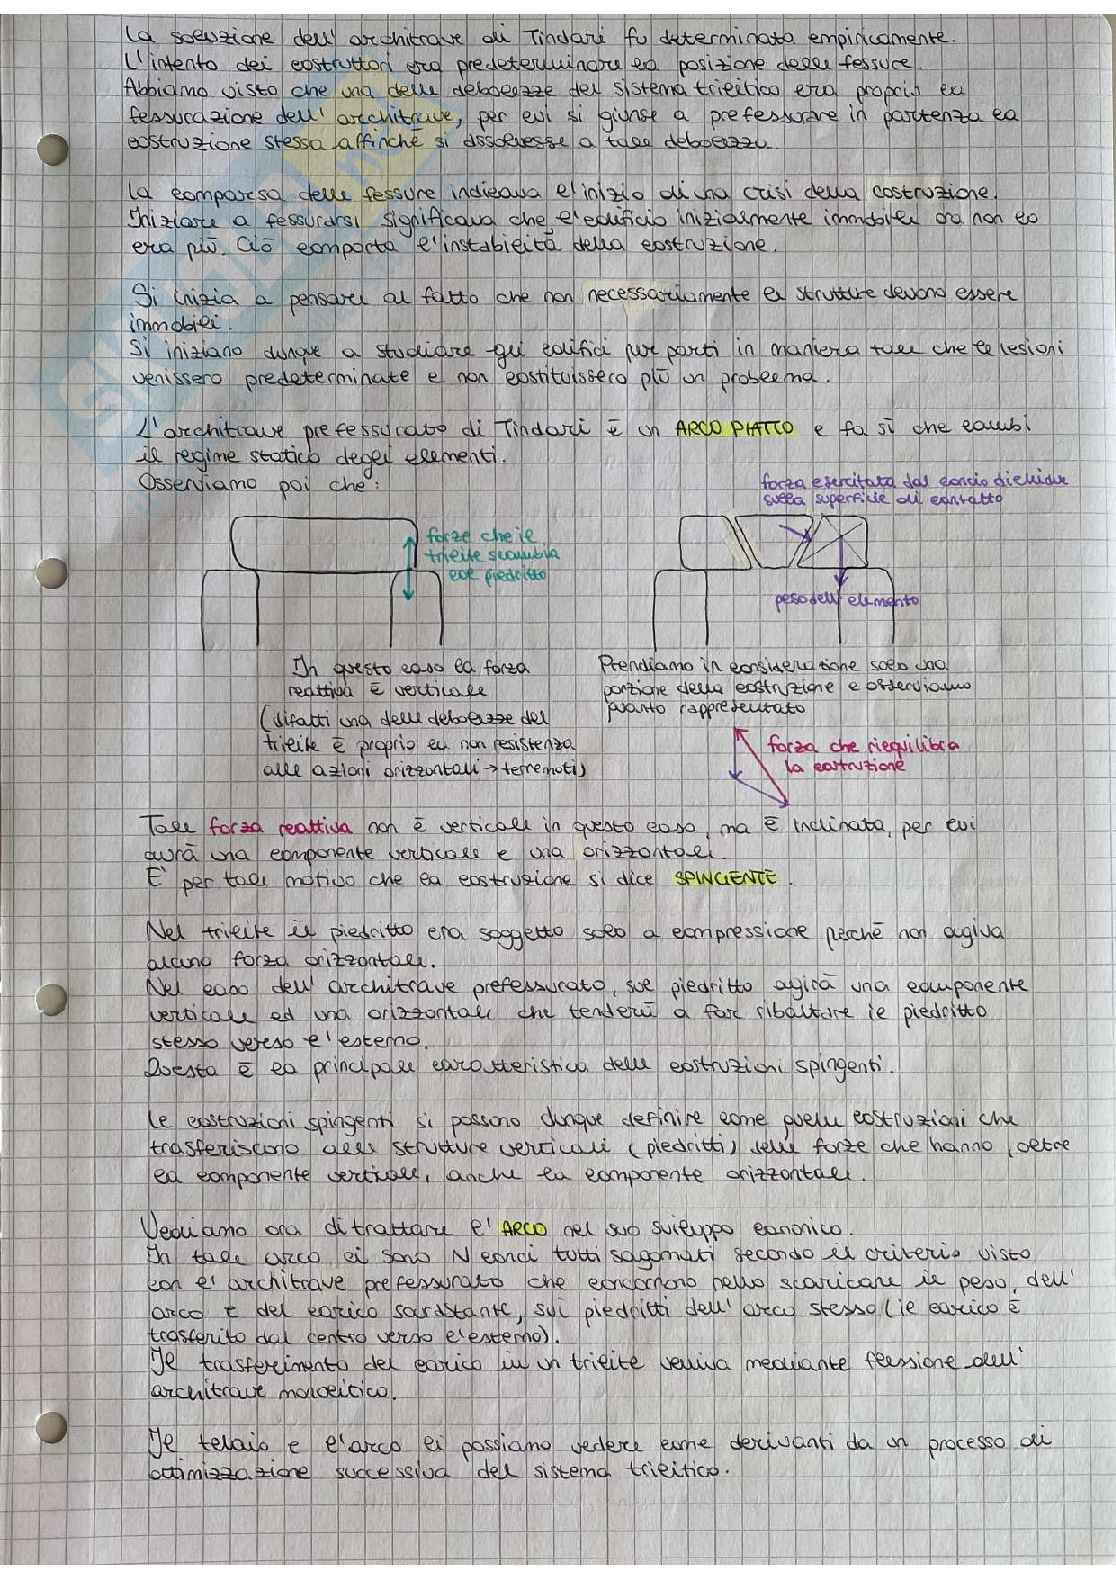 La soluzione dell'architrave di Tindari fu determinata empiricamente.
L'intento dei costruttori era predeterminare la posizione delle fessure.
Abbiamo visto che una delle debolezze del sistema trilitico era proprio la
fessurazione dell'architrave, per cui si giunse a prefessurare in partenza la
costruzione stessa affinché si dissolvesse a tale debolezza.
La comparsa delle fessure indicava l'inizio di una crisi della costruzione.
Iniziare a fessurarsi significava che l'edificio inizialmente immobile ora non lo
era più. Ciò comporta l'instabilità della costruzione.
Si inizia a pensare al fatto che non necessariamente le strutture devono essere
immobili.
Si iniziano dunque a studiare gli edifici per parti in maniera tale che le lesioni
venissero predeterminate e non costituissero più un problema.
L'architrave prefessurato di Tindari è un ARCO PIATTO e fa sì che cambi
il regime statico degli elementi.
Osserviamo poi che:
forza esercitata dal concio di chiave
sulla superficie di contatto
forze che il
trilite scambia
col piedritto
peso dell'elemento
In questo caso la forza
reattiva è verticale
(difatti una delle debolezze del
trilite è proprio la non resistenza
alle azioni orizzontali → terremoti)
Prendiamo in considerazione solo una
porzione della costruzione e osserviamo
quanto rappresentato
forza che riequilibra
la costruzione
Tale forza reattiva non è verticale in questo caso, ma è inclinata, per cui
avrà una componente verticale e una orizzontale.
E' per tale motivo che la costruzione si dice SPINGENTE.
Nel trilite il piedritto era soggetto solo a compressione perché non agiva
alcuna forza orizzontale.
Nel caso dell'architrave prefessurato, sul piedritto agirà una componente
verticale ed una orizzontale che tenderà a far ribaltare il piedritto
stesso verso l'esterno.
Questa è la principale caratteristica delle costruzioni spingenti.
Le costruzioni spingenti si possono dunque definire come quelle costruzioni che
trasferiscono alle strutture verticali (piedritti) delle forze che hanno, oltre
la componente verticale, anche la componente orizzontale.
Vediamo ora di trattare l'ARCO nel suo sviluppo canonico.
In tale arco ci sono N conci tutti sagomati secondo il criterio visto
con l'architrave prefessurato che concorrono nello scaricare il peso, dell'
arco e del carico sovrastante, sui piedritti dell'arco stesso (il carico è
trasferito dal centro verso l'esterno).
Il trasferimento del carico in un trilite veniva mediante flessione dell'
architrave monolitico.
Il telaio e l'arco li possiamo vedere come derivanti da un processo di
ottimizzazione successiva del sistema trilitico.